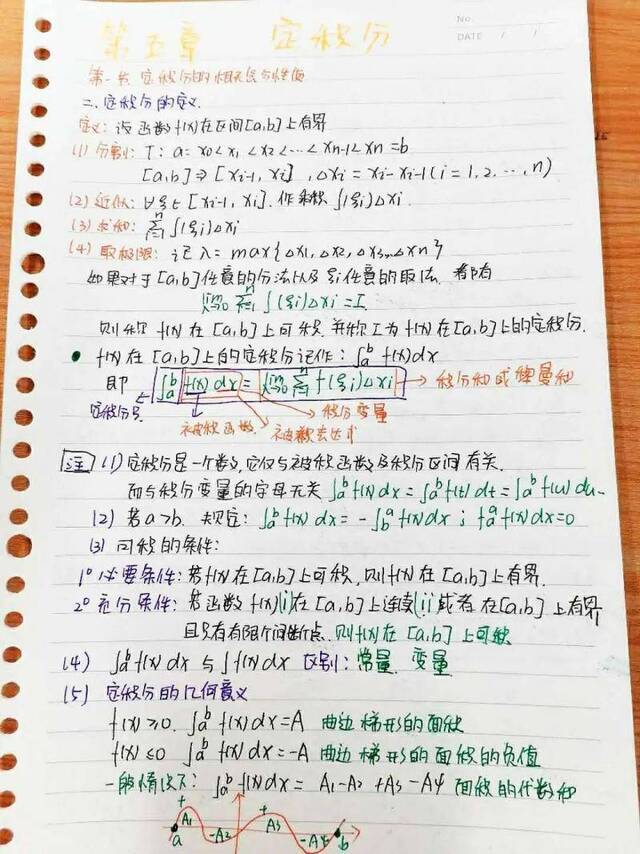 No.
DATE / /
第五章 定积分
第一节 定积分的概念与性质
二、定积分的定义
定义：设函数f(x)在区间[a,b]上有界
(1) 分割：T：a=x₀<x₁<x₂<…<xn-1<xn=b
[a,b]⇒[xi-1, xi], △xi=xi-xi-1(i=1,2,…,n)
(2) 近似：∀ξi∈[xi-1, xi]. 作乘积 f(ξi)△xi
(3) 求和：∑ⁿᵢ₌₁ f(ξi)△xi
(4) 取极限：记λ=max{△x₁,△x₂,△x₃…△xn}
如果对于[a,b]任意的分法以及ξi任意的取法，都有
lim λ→0 ∑ⁿᵢ₌₁ f(ξi)△xi=I
则称f(x)在[a,b]上可积，并称I为f(x)在[a,b]上的定积分.
• f(x)在[a,b]上的定积分记作：∫ₐᵇ f(x)dx
即 ∫ₐᵇ f(x)dx = lim λ→0 ∑ⁿᵢ₌₁ f(ξi)△xi → 积分和或黎曼和
定积分号 被积函数 被积表达式 积分变量
注 (1) 定积分是一个数，它仅与被积函数及积分区间有关，
而与积分变量的字母无关 ∫ₐᵇ f(x)dx=∫ₐᵇ f(t)dt=∫ₐᵇ f(u)du
(2) 若a>b. 规定：∫ₐᵇ f(x)dx = -∫ᵇₐ f(x)dx；∫ₐᵃ f(x)dx=0
(3) 可积的条件：
1° 必要条件：若f(x)在[a,b]上可积，则f(x)在[a,b]上有界.
2° 充分条件：若函数f(x)(i)在[a,b]上连续(ii)或者在[a,b]上有界
且只有有限个间断点，则f(x)在[a,b]上可积
(4) ∫ₐᵇ f(x)dx与∫f(x)dx 区别：常量 变量
(5) 定积分的几何意义
f(x)≥0. ∫ₐᵇ f(x)dx=A 曲边梯形的面积
f(x)≤0 ∫ₐᵇ f(x)dx=-A 曲边梯形的面积的负值
一般情况下：∫ₐᵇ f(x)dx= A₁-A₂+A₃-A4 面积的代数和
+ A₁ -A₂ + A₃ -A4
a b